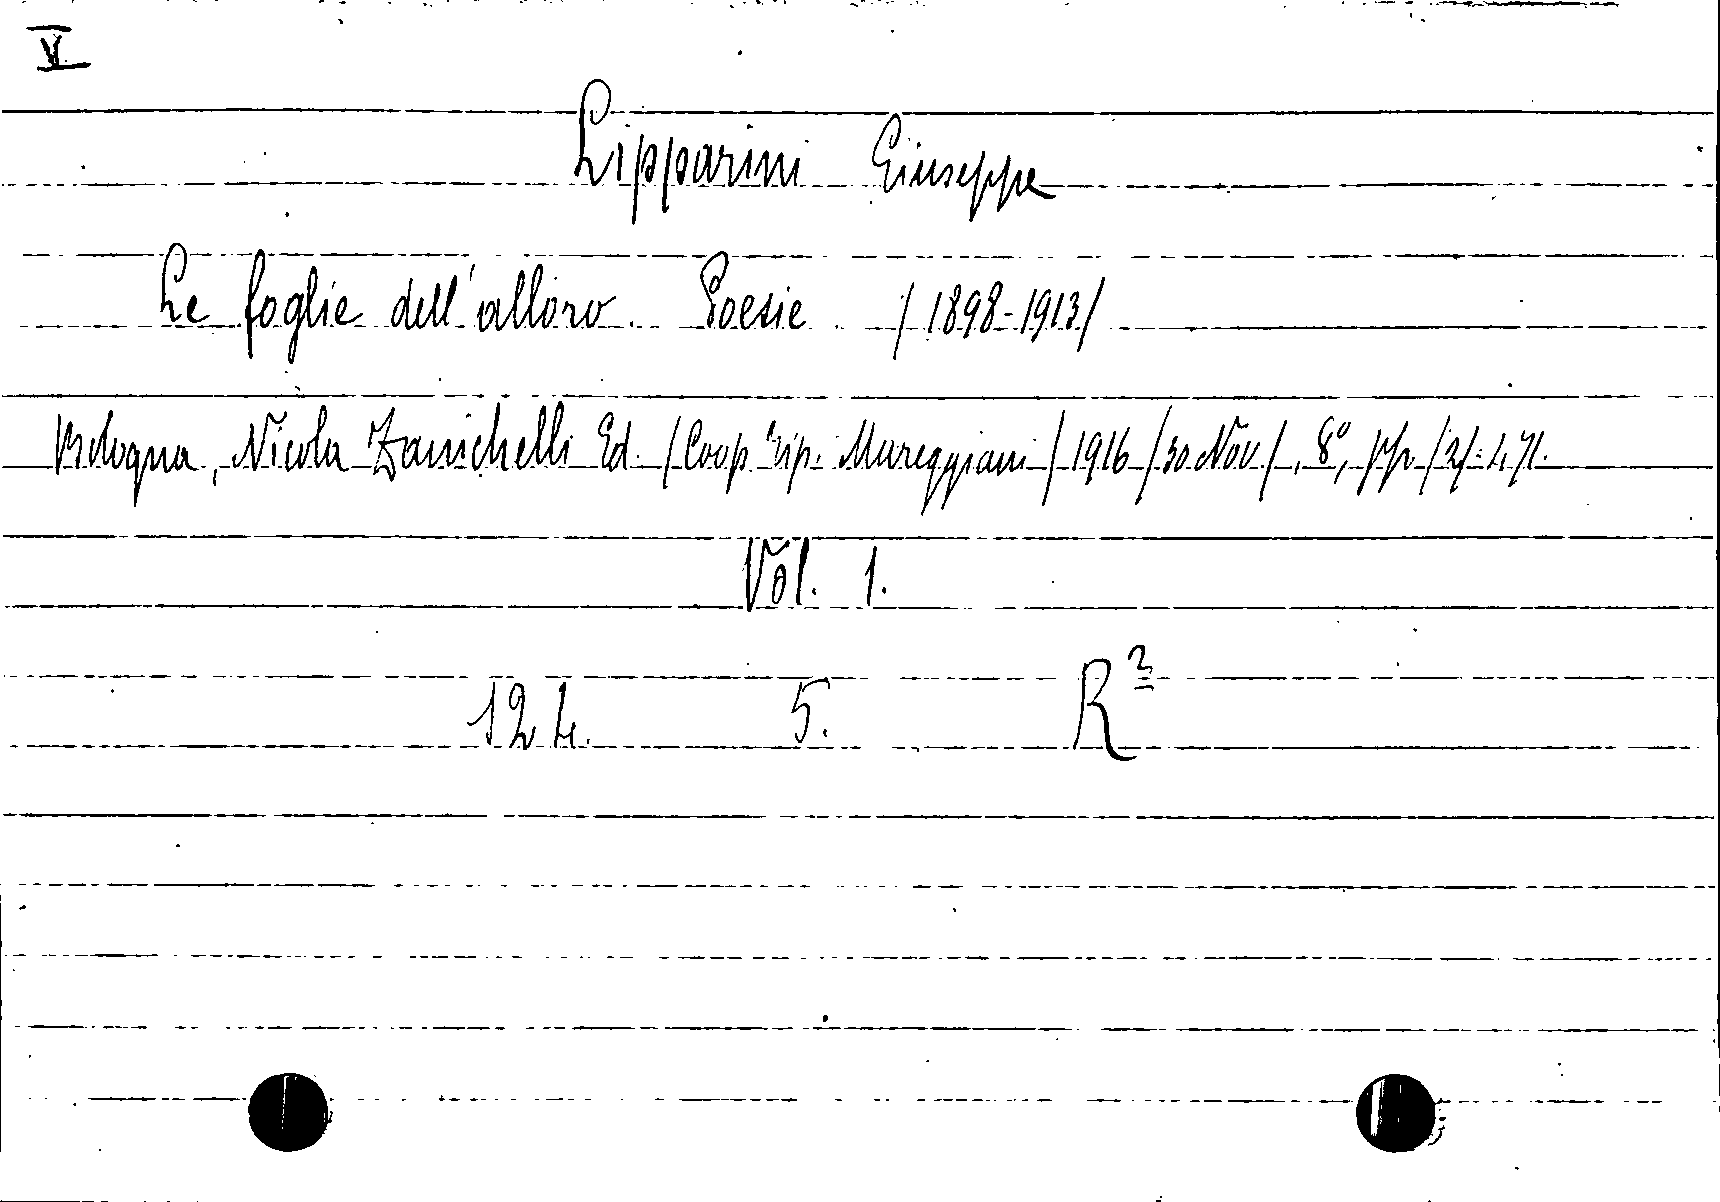 V
Lipparini Giuseppe
Le foglie dell'alloro. Poesie /1898-1913/
Bologna, Nicola Zanichelli Ed. /Coop. Tip. Mareggiani/ 1916 /30 Nov/, 8°, pp /2/. 471.
Vol. 1.
124. 5. R²